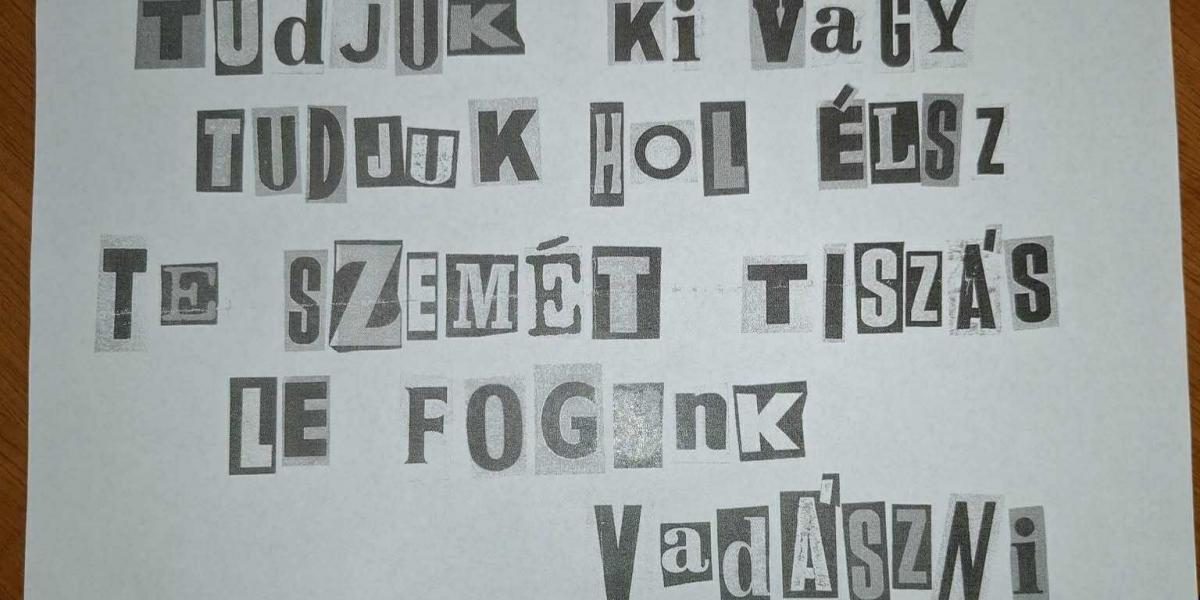 TUdJUK Ki VaGY
TUDJUK HOL ÉLSZ
TE SZEMÉT TISZÁS
LE FOGUnK
VadÁSZNi